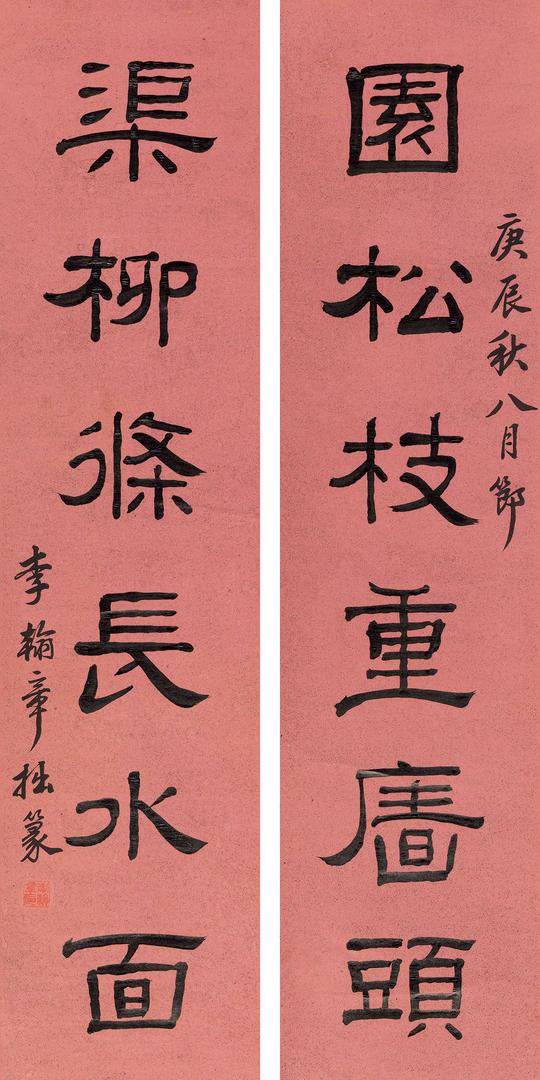 庚辰秋八月節
園松枝重廧頭
渠柳條長水面
李翰章拙篆